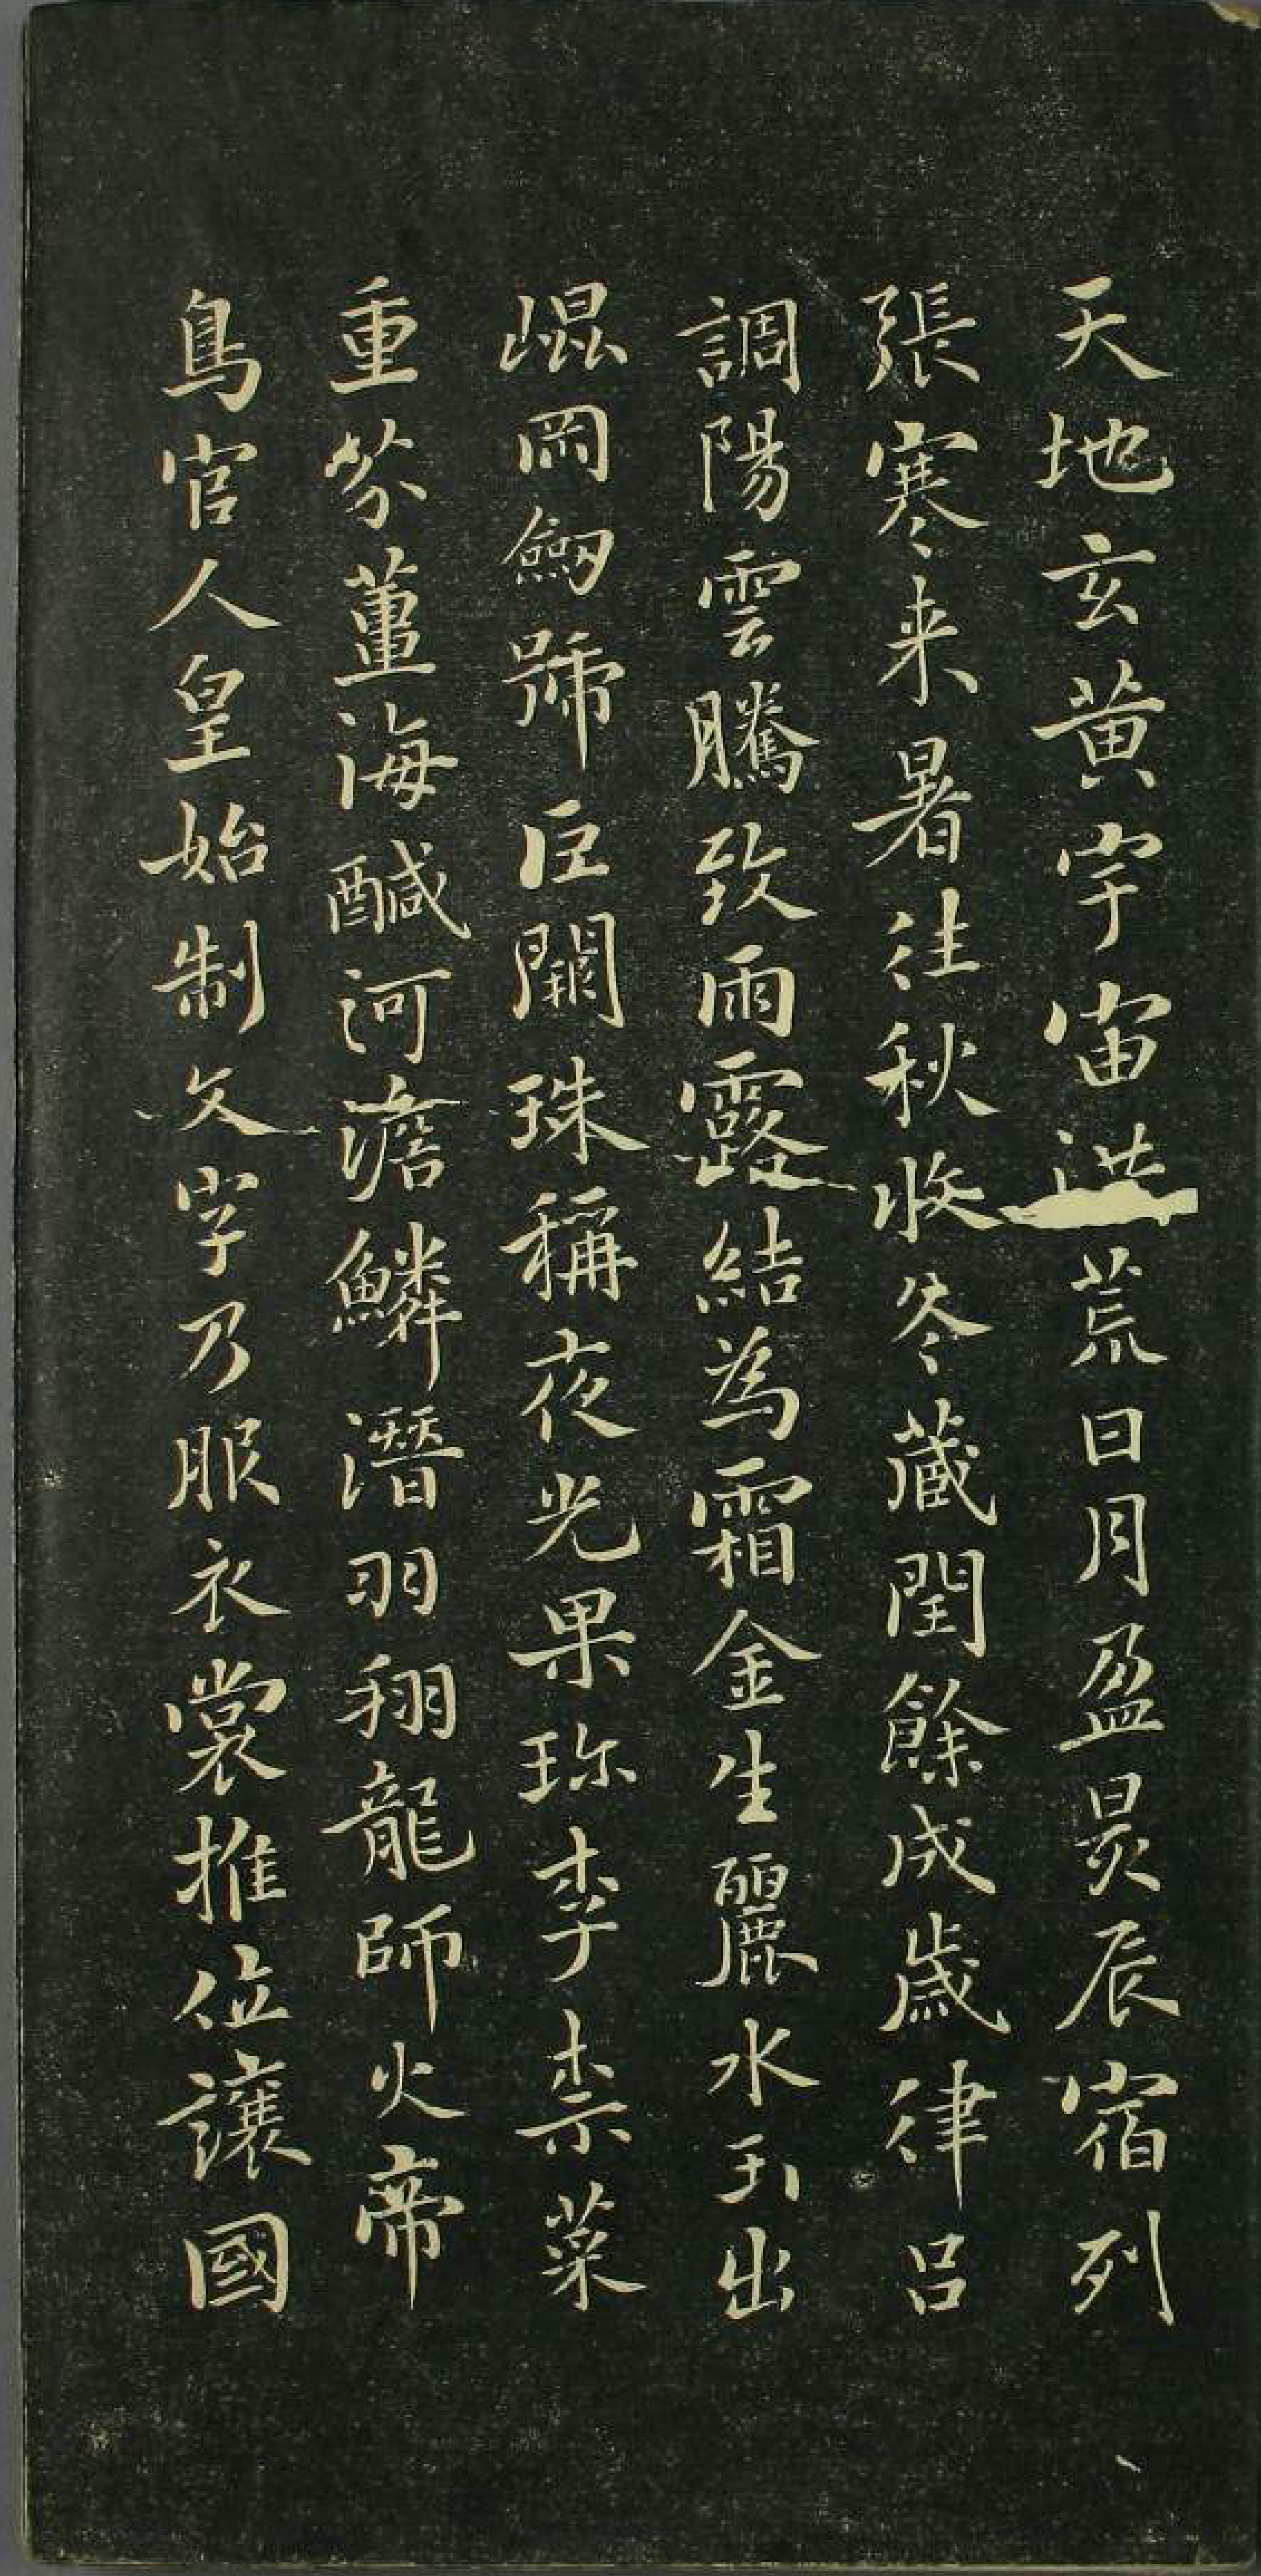 天地玄黃宇宙洪荒日月盈昃辰宿列
張寒来暑往秋收冬藏閏餘成歲律呂
調陽雲騰致雨露結為霜金生麗水玉出
崐岡劒號巨闕珠稱夜光果珎李柰菜
重芥薑海醎河淡鱗潛羽翔龍師火帝
鳥官人皇始制文字乃服衣裳推位讓國